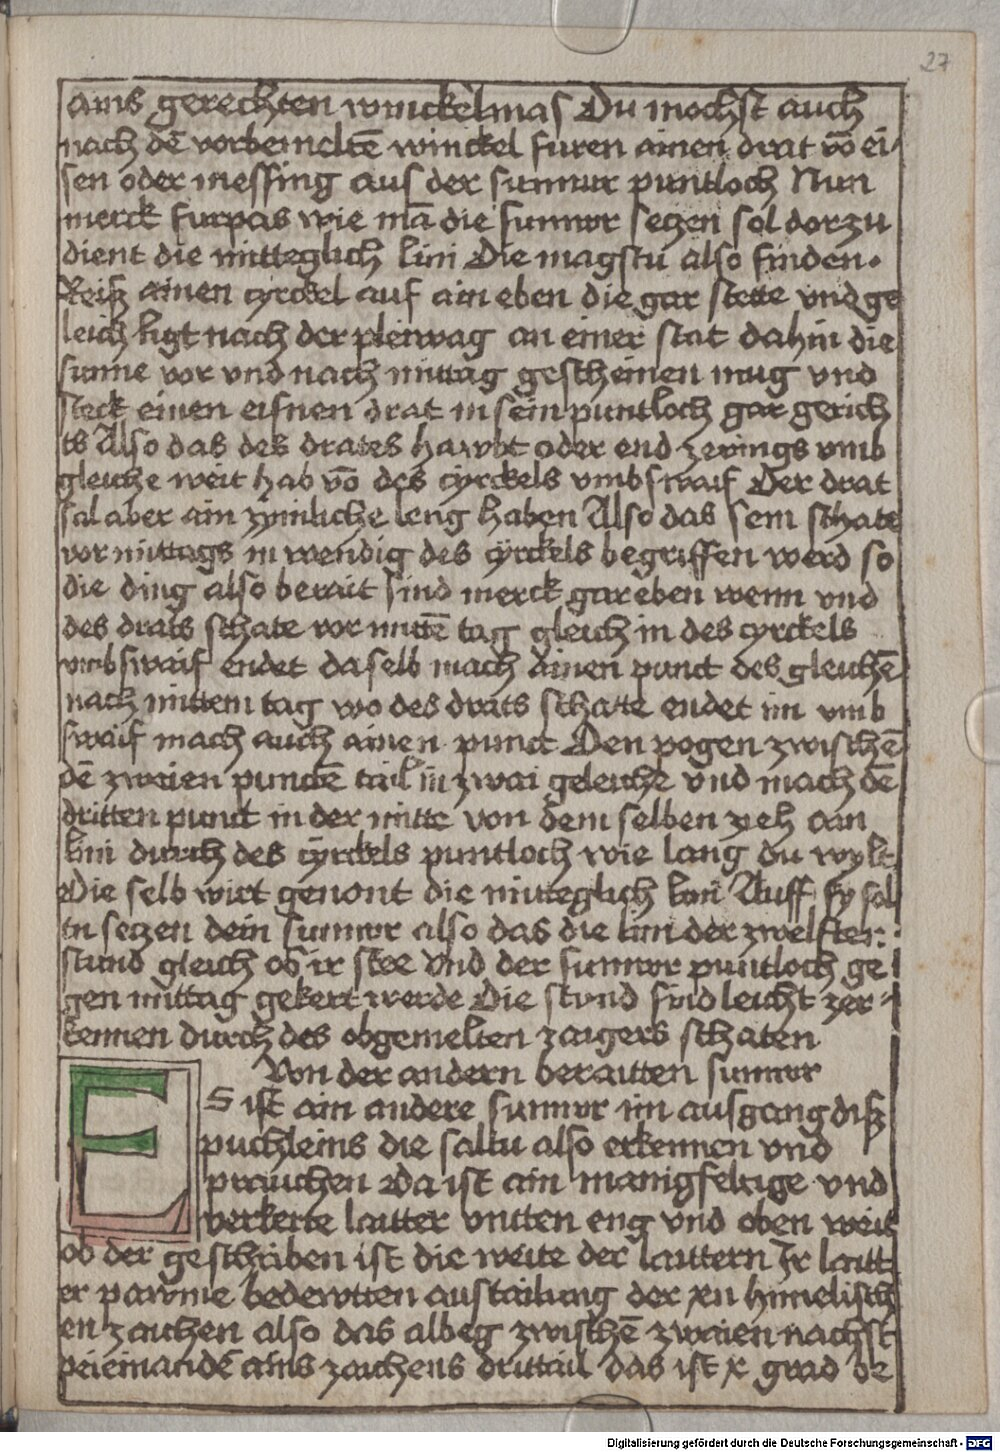 27
ains gerechten winckelmas Du mochst auch
nach dē vorbemeltē winckel furen ainen drat vō ei⸗
sen oder messing aus der sunnwr puntloch Nun
merck furpas wie mā die sunnwr seczen sol dorzu
dient die mitteglich lini Die magstu also finden.
Reisz ainen cyrckel auf ain eben die gar stette vnd ge
leich ligt nach der pleiwag an einer stat dahin die
sunne vor vnd nach mittag gescheinen mug vnd
steck einen eisnen drat in sein puntloch gar gerich
ts Also das des drates hawbt oder end zerings vmb
gleiche weit hab vō des cyrckels vmbswaif Der drat
sal aber ain zymliche leng haben Also das sein schate
vor mittags inwendig des cyrckels begriffen werd so
die ding also berait sind merck gar eben wenn vnd
des drats schate vor mittē tag gleich in des cyrckels
vmbswaif endet daselb mach ainen punct des gleichē
nach mittem tag wo des drats schatte endet im vmb
swaif mach auch ainen punct Den pogen zwischē
dē zwaien punctē tail in zwai geleiche vnd mach dē
dritten punct in der mitte von dem selben zeh ain
lini durch des cyrckels puntloch wie lang du wylt
Die selb wirt genont die mitteglich lini Auff sy sol
tu seczen dein sunnwr also das die lini der zwelften
stund gleich ob ir stee vnd der sunnwr puntloch ge
gen mittag gekert werde Die stund sind leicht zer⸗
kennen durch des obgemelten zaigers schaten
Von der andern beraitten sunnwr
ES ist ain andere sunnwr im ausgang disz
puchleins die saltu also erkennen vnd
prauchen Da ist ain manigfeltige vnd
verkerte laitter vntten eng vnd oben weit
ob der geschriben ist die weite der laittern Ir laitt
er pawme bedewtten austailung der xii himelisch
en zaichen also das albeg zwischē zwaien nachst
peieinandē ains zaichens drittail das ist x grad be
Digitalisierung gefördert durch die Deutsche Forschungsgemeinschaft - DFG